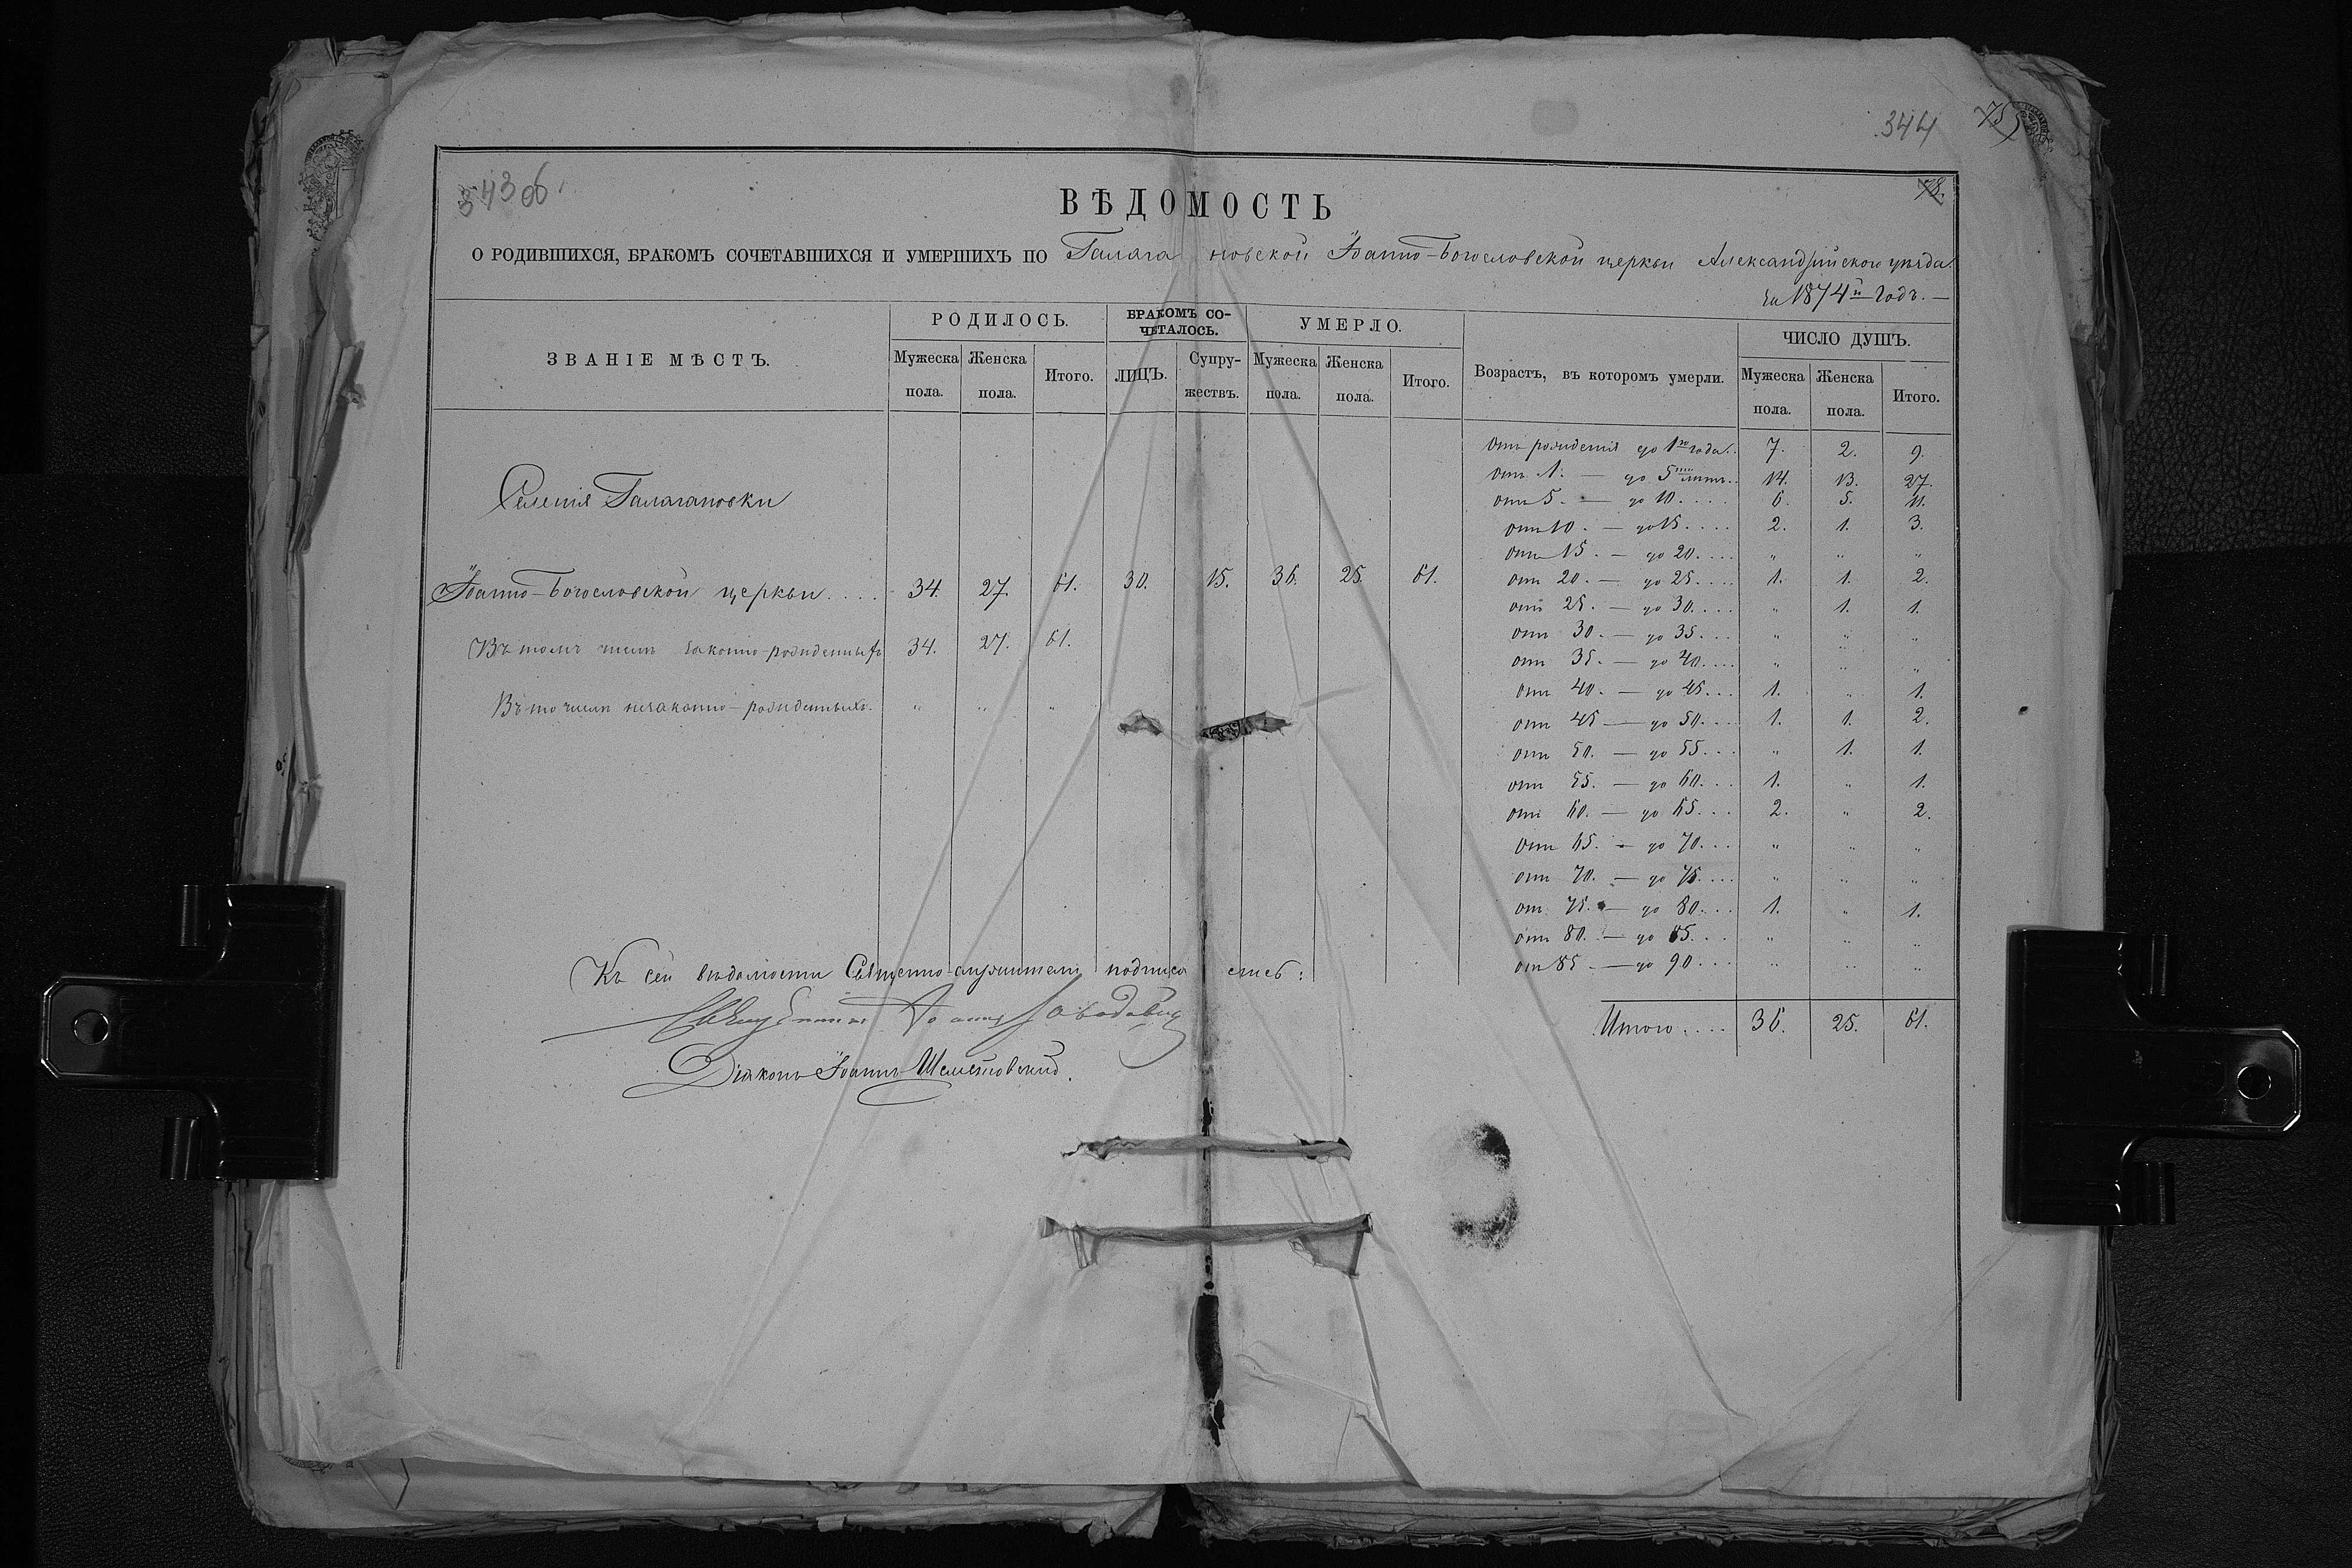 344
75
343 об.
78.
ВѢДОМОСТЬ
О РОДИВШИХСЯ, БРАКОМЪ СОЧЕТАВШИХСЯ И УМЕРШИХЪ ПО Галагановской Іоанно-Богословской церкви Александрійскаго уѣзда
за 1874й годъ. —
ЗВАНІЕ МѢСТЪ. РОДИЛОСЬ. БРАКОМЪ СОЧЕТАЛОСЬ. УМЕРЛО. Возрастъ, въ которомъ умерли. ЧИСЛО ДУШЪ.
Мужеска пола. Женска пола. Итого. ЛИЦЪ. Супружествъ. Мужеска пола. Женска пола. Итого. Мужеска пола. Женска пола. Итого.
Отъ рожденія до 1го года.. 7. 2. 9.
Отъ 1. — до 5ти лѣтъ.. 14. 13. 27.
Селенія Галагановки
отъ 5. — до 10.... 6. 5. 11.
отъ 10. — до 15.... 2. 1. 3.
отъ 15. — до 20.... " " "
Іоанно-Богословской церкви.... 34. 27. 61. 30. 15. 36. 25. 61.
отъ 20. — до 25.... 1. 1. 2.
отъ 25. — до 30.... " 1. 1.
отъ 30. — до 35... " " "
Въ томъ числѣ законно-рожденныхъ 34. 27. 61.
отъ 35. — до 40.... " " "
отъ 40. — до 45... 1. " 1.
Въ то числѣ незаконно-рожденныхъ. " " "
отъ 45 — до 50.... 1. 1. 2.
отъ 50. — до 55... " 1. 1.
отъ 55. — до 60... 1. " 1.
отъ 60. — до 65... 2. " 2.
отъ 65. — до 70... " " "
отъ 70. — до 75.... " " "
отъ 75. — до 80... 1. " 1.
отъ 80. — до 85... " " "
отъ 85 — до 90... " " "
Къ сей вѣдомости Священно-служители подписались:
Священникъ Іоаннъ
Діаконъ Іоаннъ
Итого.... 36. 25. 61.